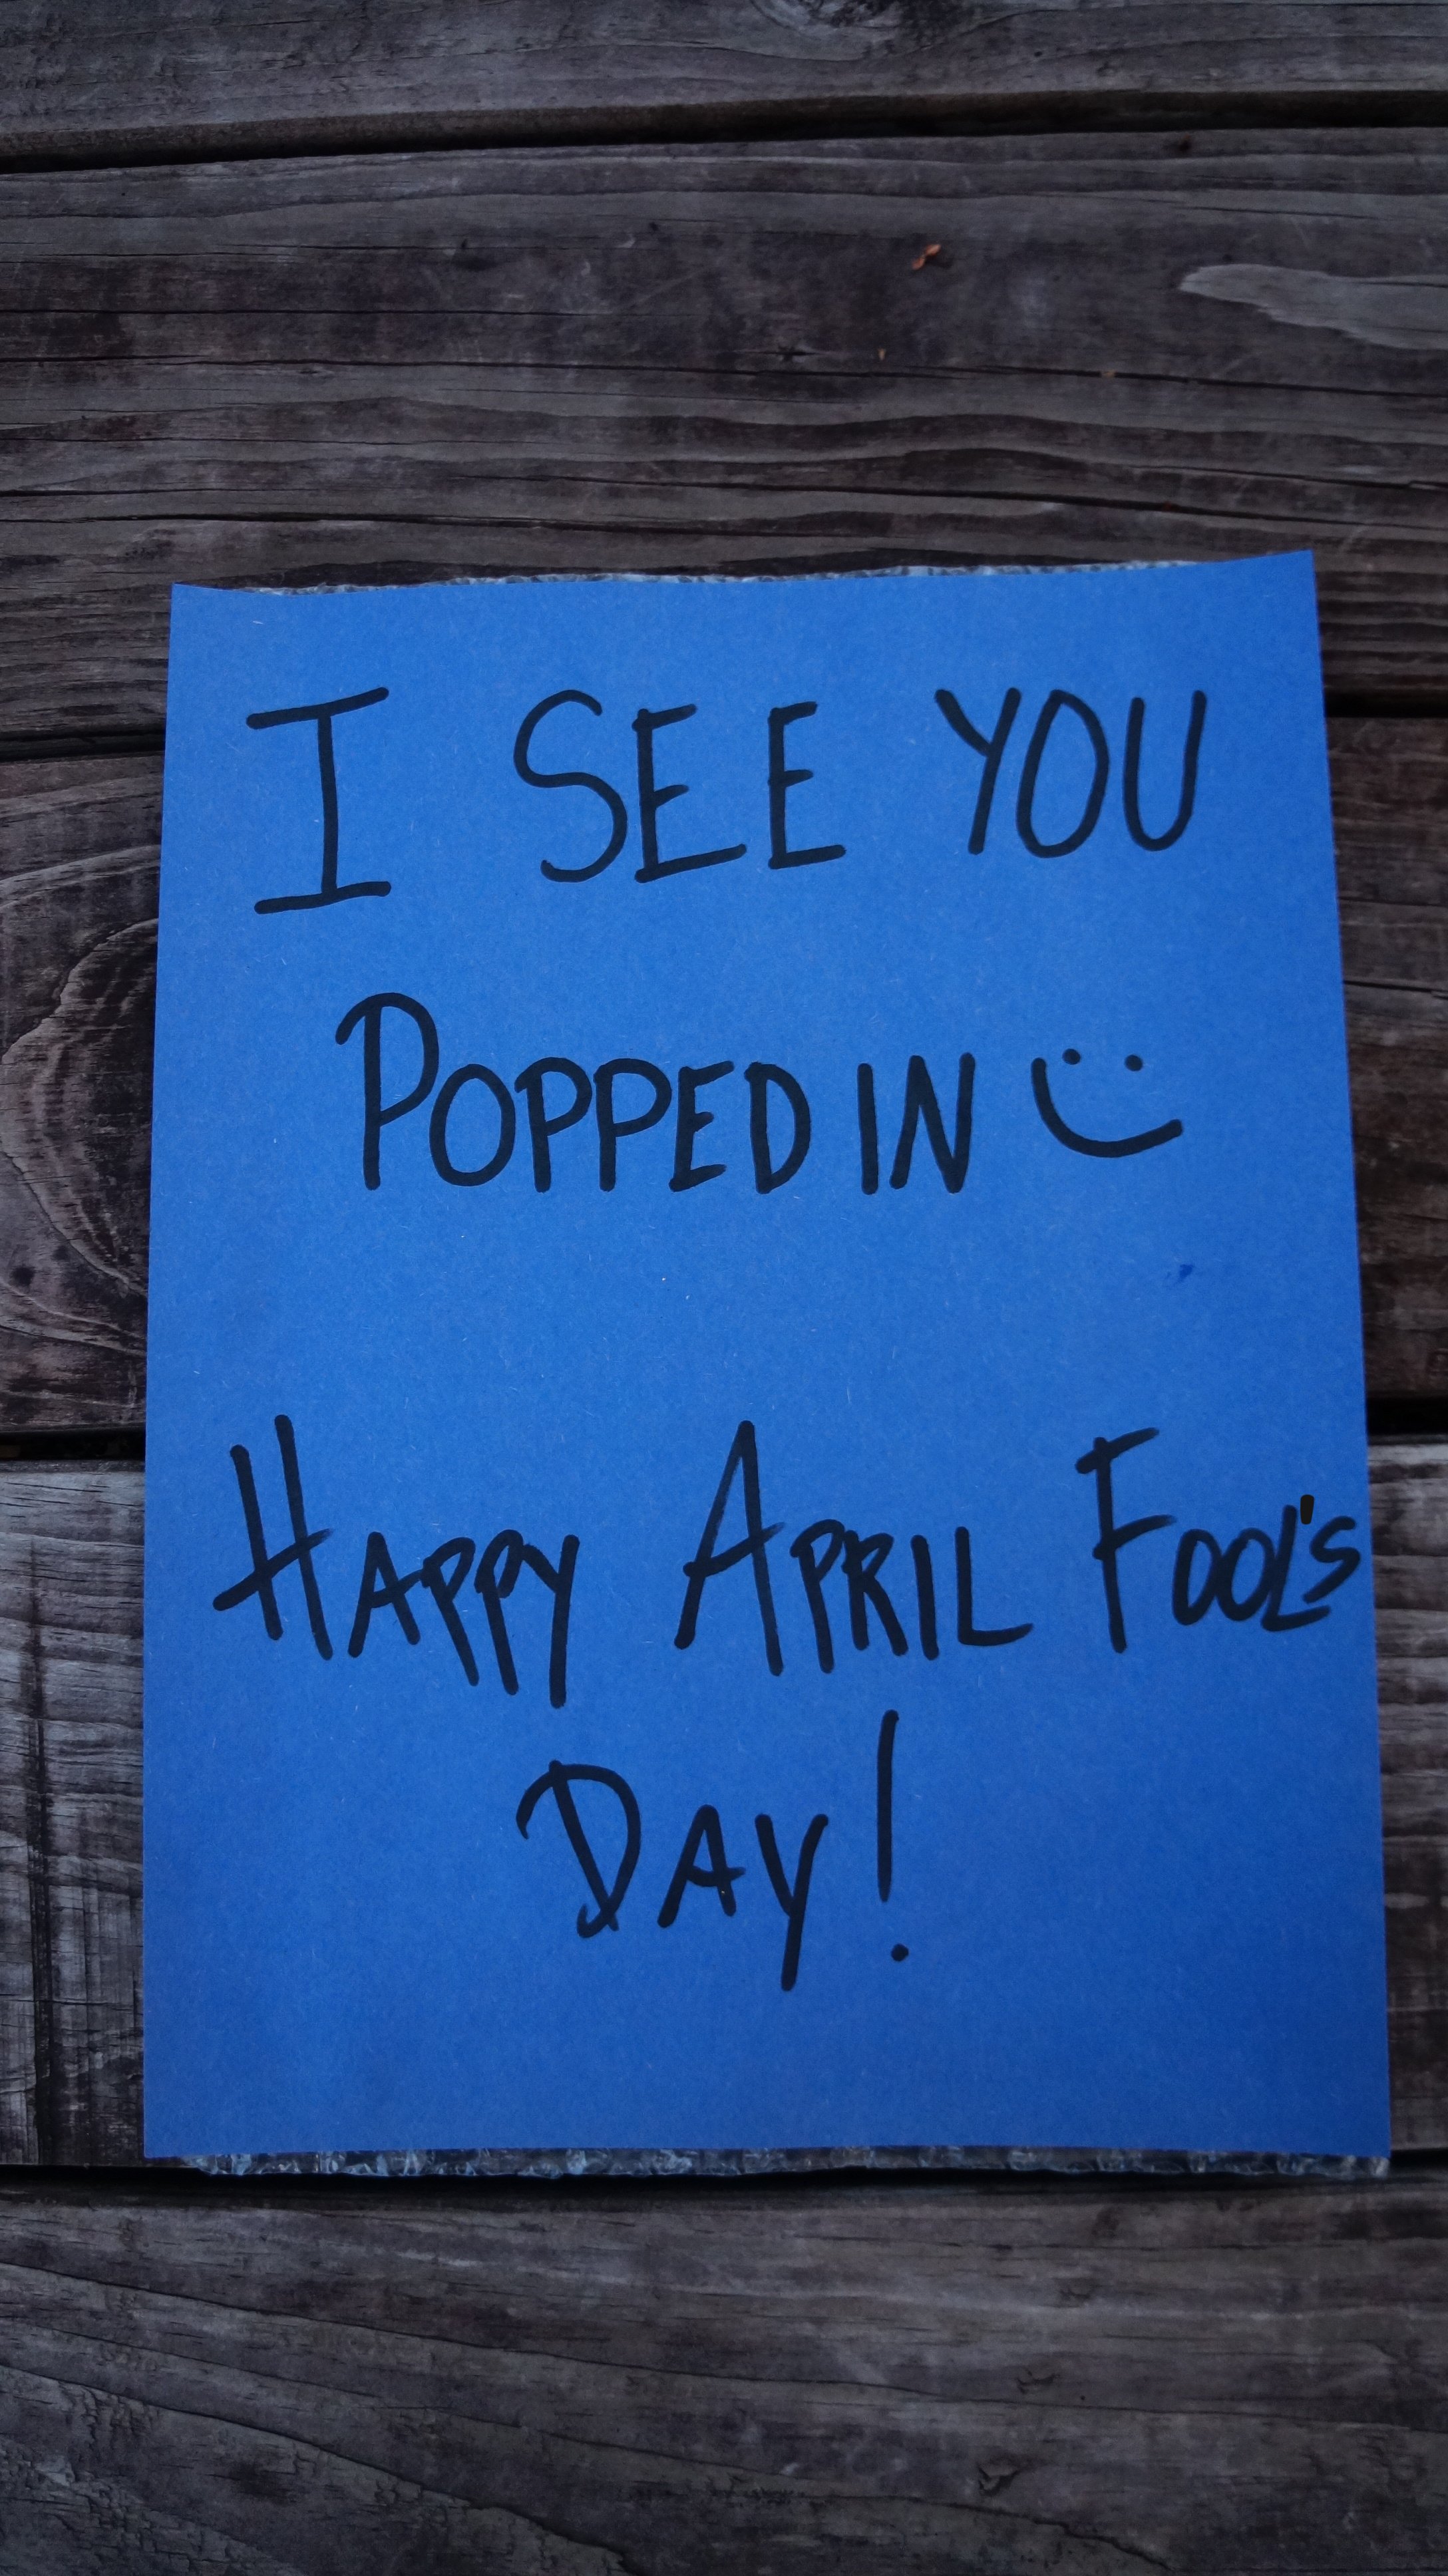 I SEE YOU
POPPED IN
HAPPY APRIL FOOL'S
DAY!